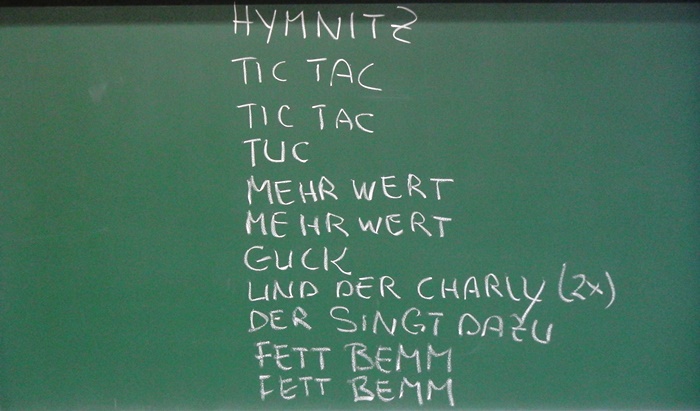 HYMNITZ
TIC TAC
TIC TAC
TUC
MEHR WERT
MEHR WERT
GUCK
UND DER CHARLY (2x)
DER SINGT DAZU
FETT BEMM
FETT BEMM